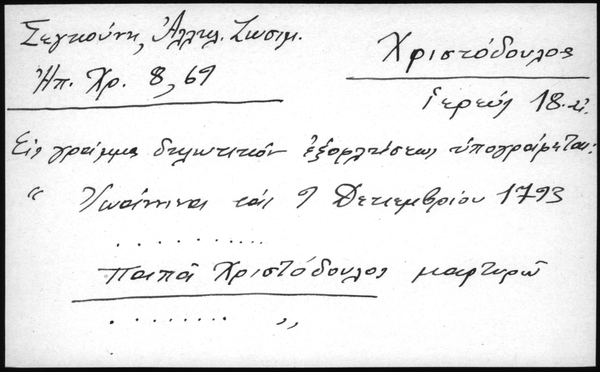 Σεγκούνη, Ἀλληλ. Ζωσιμ.
Ἠπ. Χρ. 8, 69
Χριστόδουλος
ἱερεύς 18. αἰ.
Εἰς γράμμα δηλωτικόν ἐξοφλήσεως ὑπογράφεται:
“ Ἰωάννινα τάς 9 Δεκεμβρίου 1793
. . . . . . . . . . .
παπᾶ Χριστόδουλος μαρτυρῶ
. . . . . . . . ,,